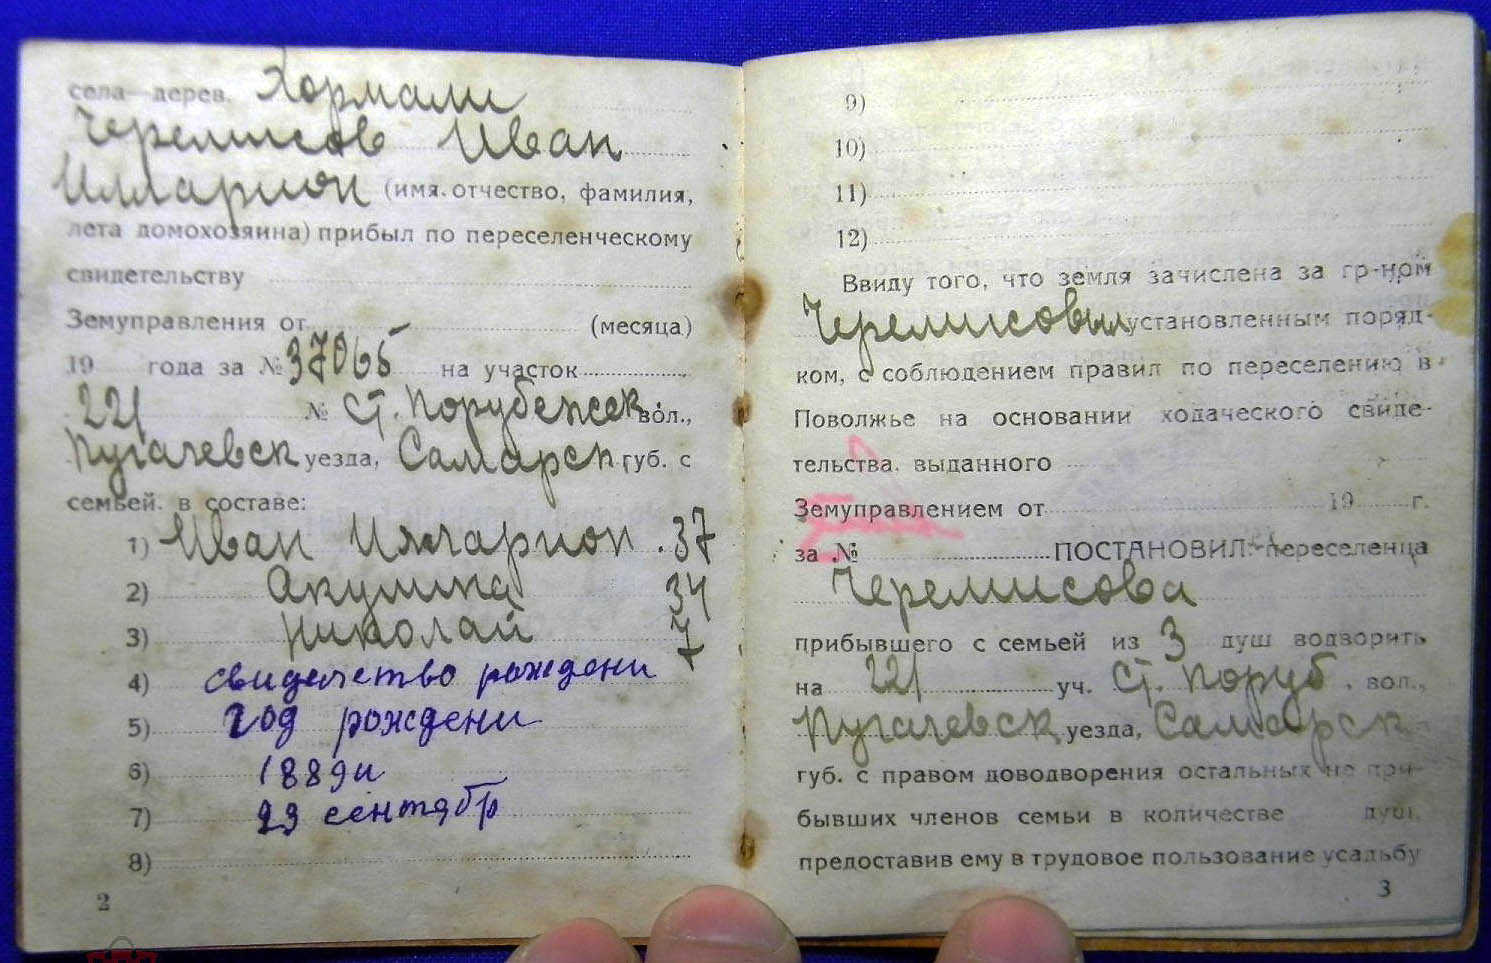 села—дерев. Хормали
Черемисов Иван
Илларион (имя, отчество, фамилия,
лета домохозяина) прибыл по переселенческому
свидетельству
Земуправления от (месяца)
19 года за № 37065 на участок
221 № Ст. Порубежск вол.,
Пугачевск уезда, Самарск губ. с
семьей, в составе:
1) Иван Илларион. 37
2) Акулина 34
3) Николай 7
4) свидетество рождени
5) год рождени
6) 1889
7) 23 сентябр
8)
2
9)
10)
11)
12)
Ввиду того, что земля зачислена за гр-ном
Черемисовым установленным поряд-
ком, с соблюдением правил по переселению в
Поволжье на основании ходаческого свиде-
тельства, выданного
Земуправлением от 19 г.
за № ПОСТАНОВИЛ: переселенца
Черемисова
прибывшего с семьей из 3 душ водворить
на 221 уч. Ст. Поруб. вол.,
Пугачевск уезда, Самарск
губ. с правом доводворения остальных не при-
бывших членов семьи в количестве душ,
предоставив ему в трудовое пользование усадьбу
3